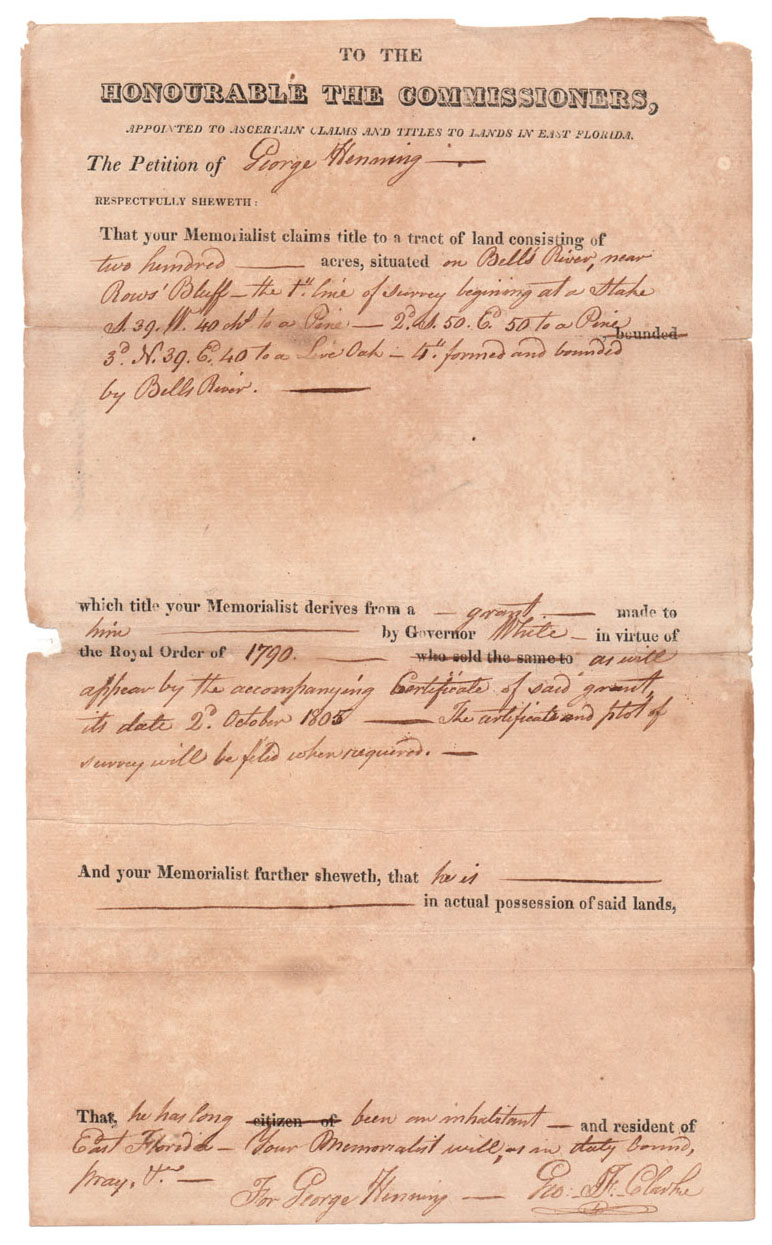 TO THE
HONOURABLE THE COMMISSIONERS,
APPOINTED TO ASCERTAIN CLAIMS AND TITLES TO LANDS IN EAST FLORIDA.
The Petition of George Henning —
RESPECTFULLY SHEWETH:
That your Memorialist claims title to a tract of land consisting of
two hundred — acres, situated on Bell's River, near
Rows' Bluff — the 1st line of survey begining at a Stake
S. 39. W. 40 chs to a Pine — 2d. S. 50. E. 50 to a Pine
bounded
3d. N. 39. E. 40 to a Live Oak — 4th. formed and bounded
by Bells River. —
which title your Memorialist derives from a — grant. — made to
him — by Governor White — in virtue of
the Royal Order of 1790. — who sold the same to as will
appear by the accompanying Certificate of said grant,
its date 2d. October 1805 — The certificate and plot of
survey will be filed when required. —
And your Memorialist further sheweth, that he is —
— in actual possession of said lands,
That, he has long citizen of been an inhabitant — and resident of
East Florida — Your Memorialist will, as in duty bound,
pray, &c —
For George Henning — Geo. J. F. Clarke